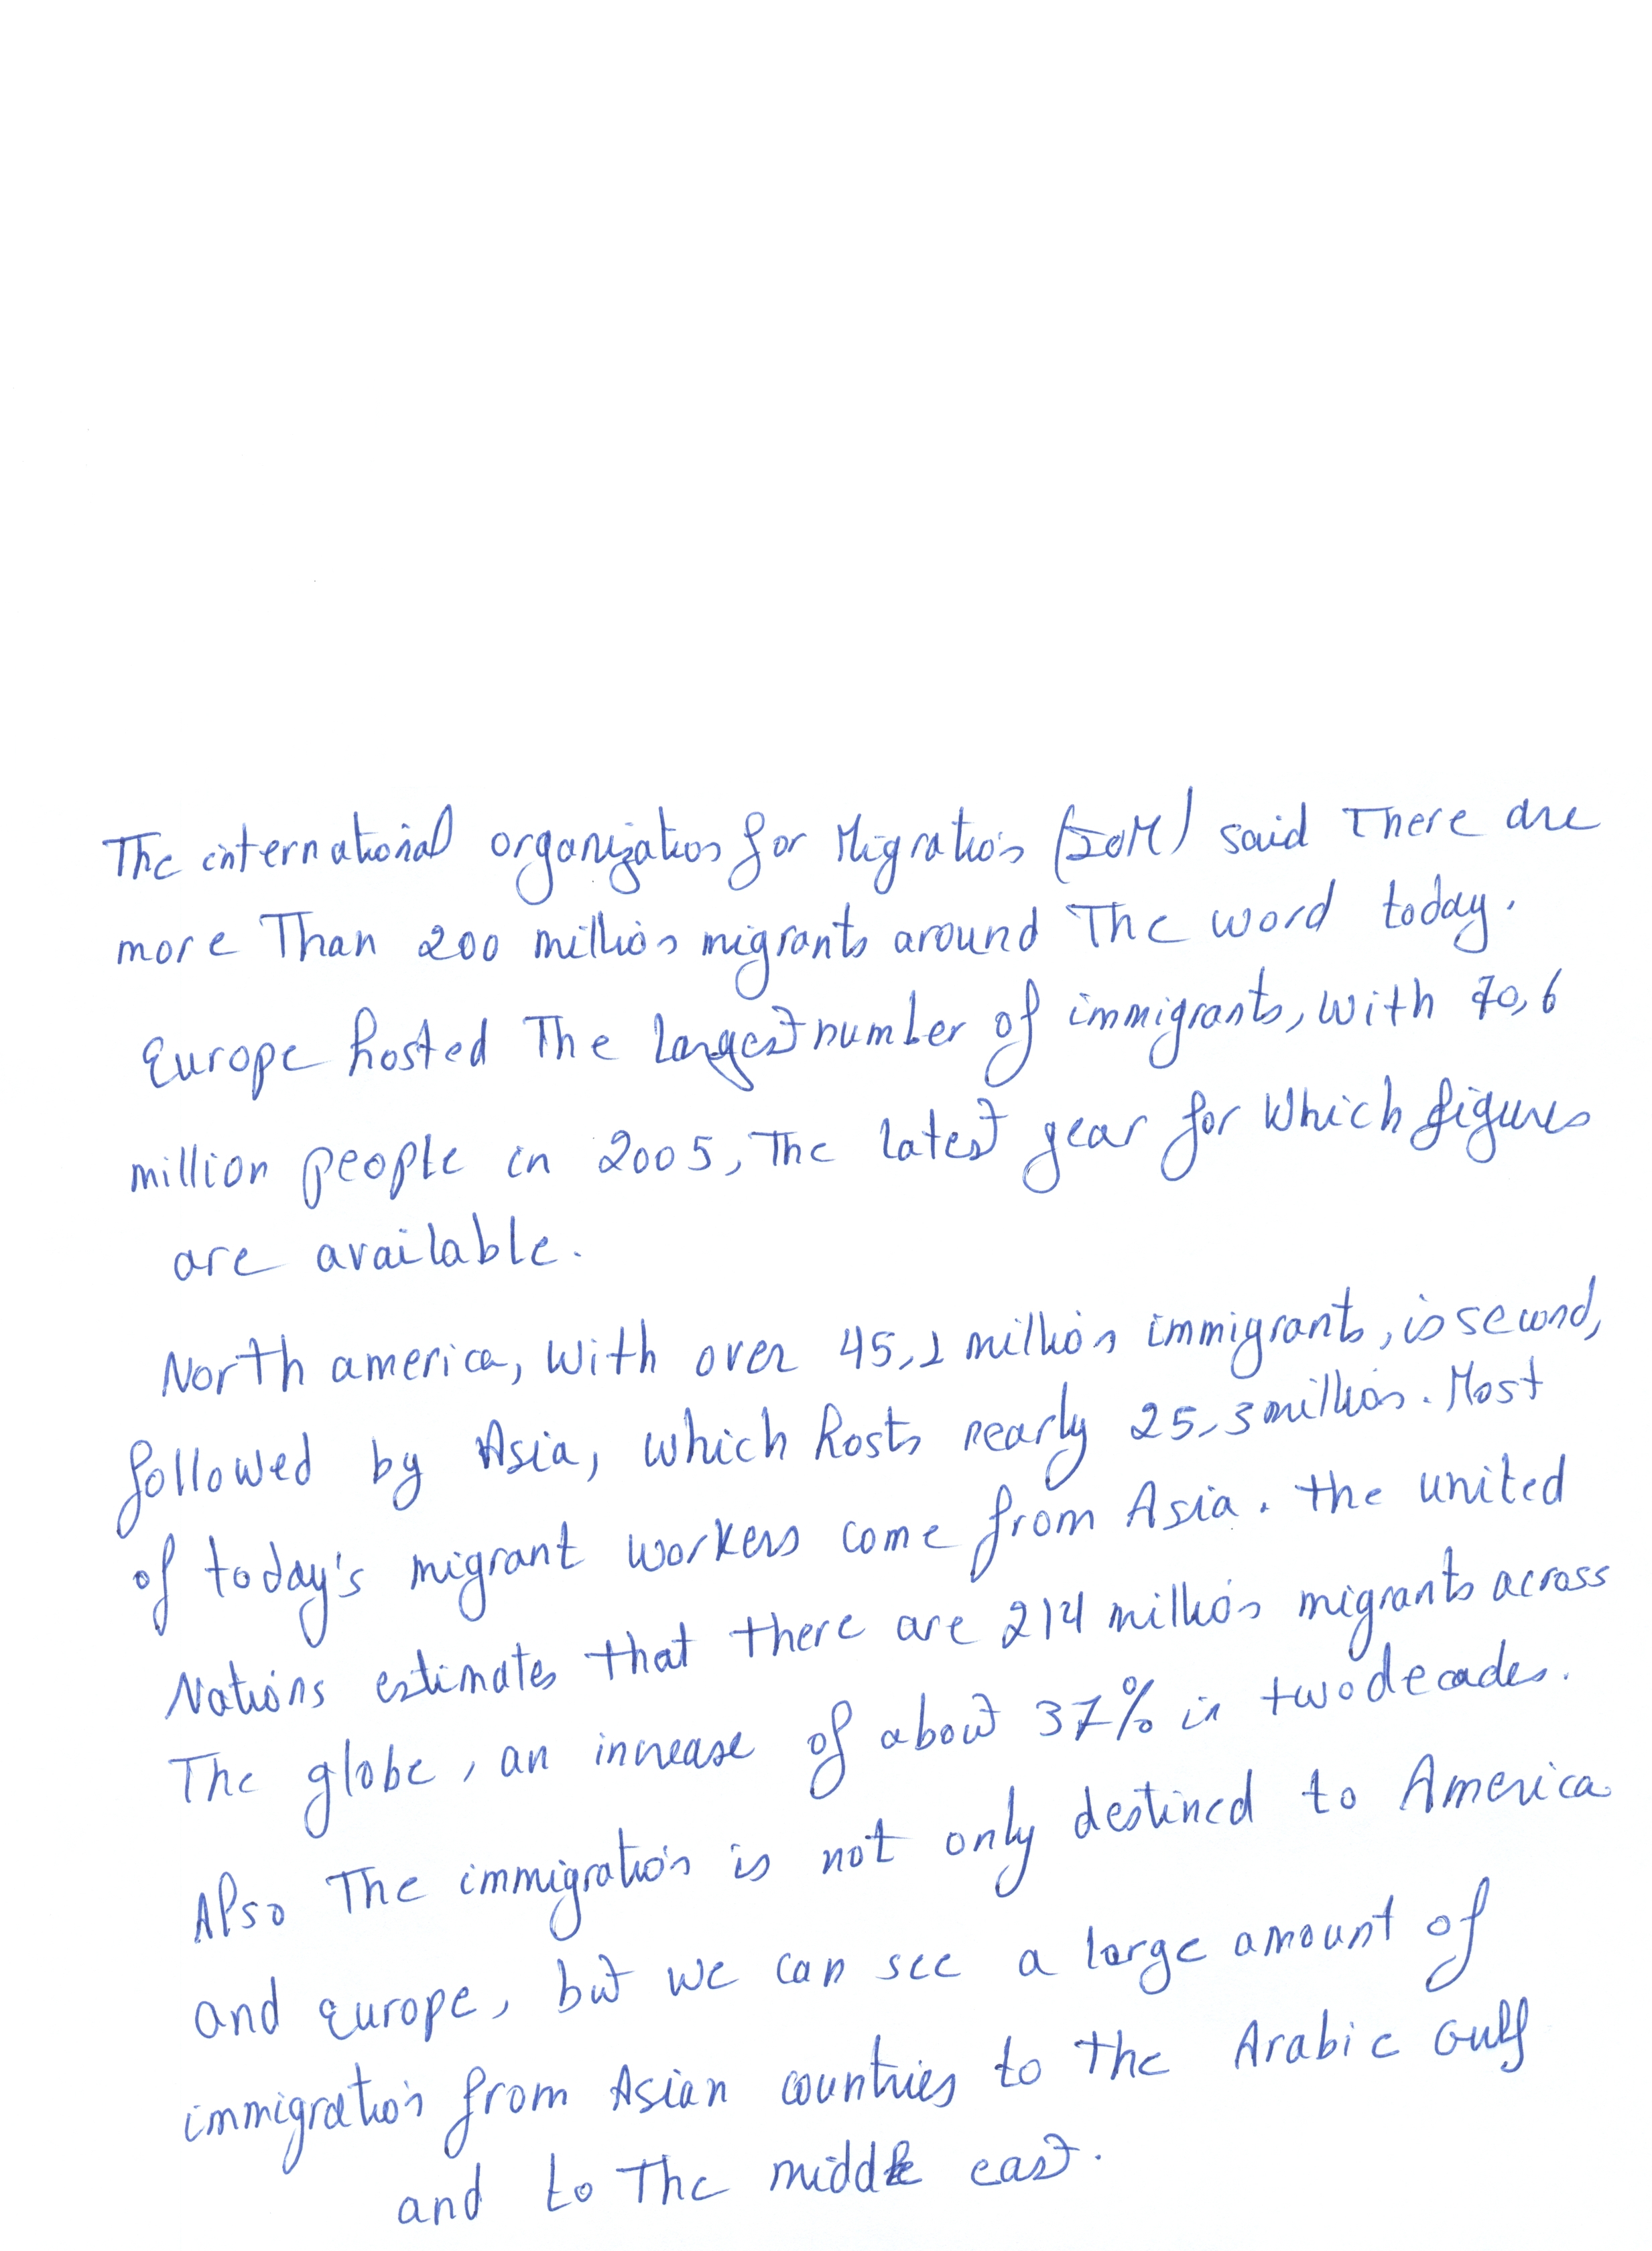 The international organization for Migration (IOM) said There are
more Than 200 million migrants around The word today.
Europe hosted The largest number of immigrants, with 70,6
million people in 2005, The latest year for Which figures
are available.
North america, with over 45,1 million immigrants, is second,
followed by Asia, which hosts nearly 25,3 million. Most
of today's migrant workers come from Asia. the united
Nations estimates that there are 214 million migrants across
The globe, an increase of about 37% in two decades.
Also The immigration is not only destined to America
and europe, but we can see a large amount of
immigration from Asian countries to the Arabic Gulf
and to The middle east.